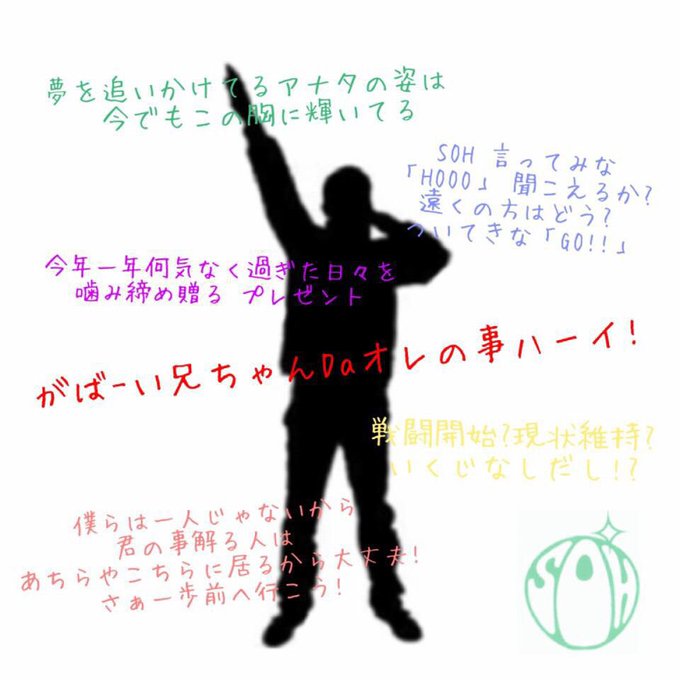 夢を追いかけてるアナタの姿は
今でもこの胸に輝いてる
SOH 言ってみな
「HOOO」 聞こえるか?
遠くの方はどう?
ついてきな「GO!!」
今年一年何気なく過ぎた日々を
噛み締め贈る プレゼント
がばーい兄ちゃんDaオレの事ハーイ!
戦闘開始?現状維持?
いくじなしだし!?
僕らは一人じゃないから
君の事解る人は
あちらやこちらに居るから大丈夫!
さぁ一歩前へ行こう!
SOH